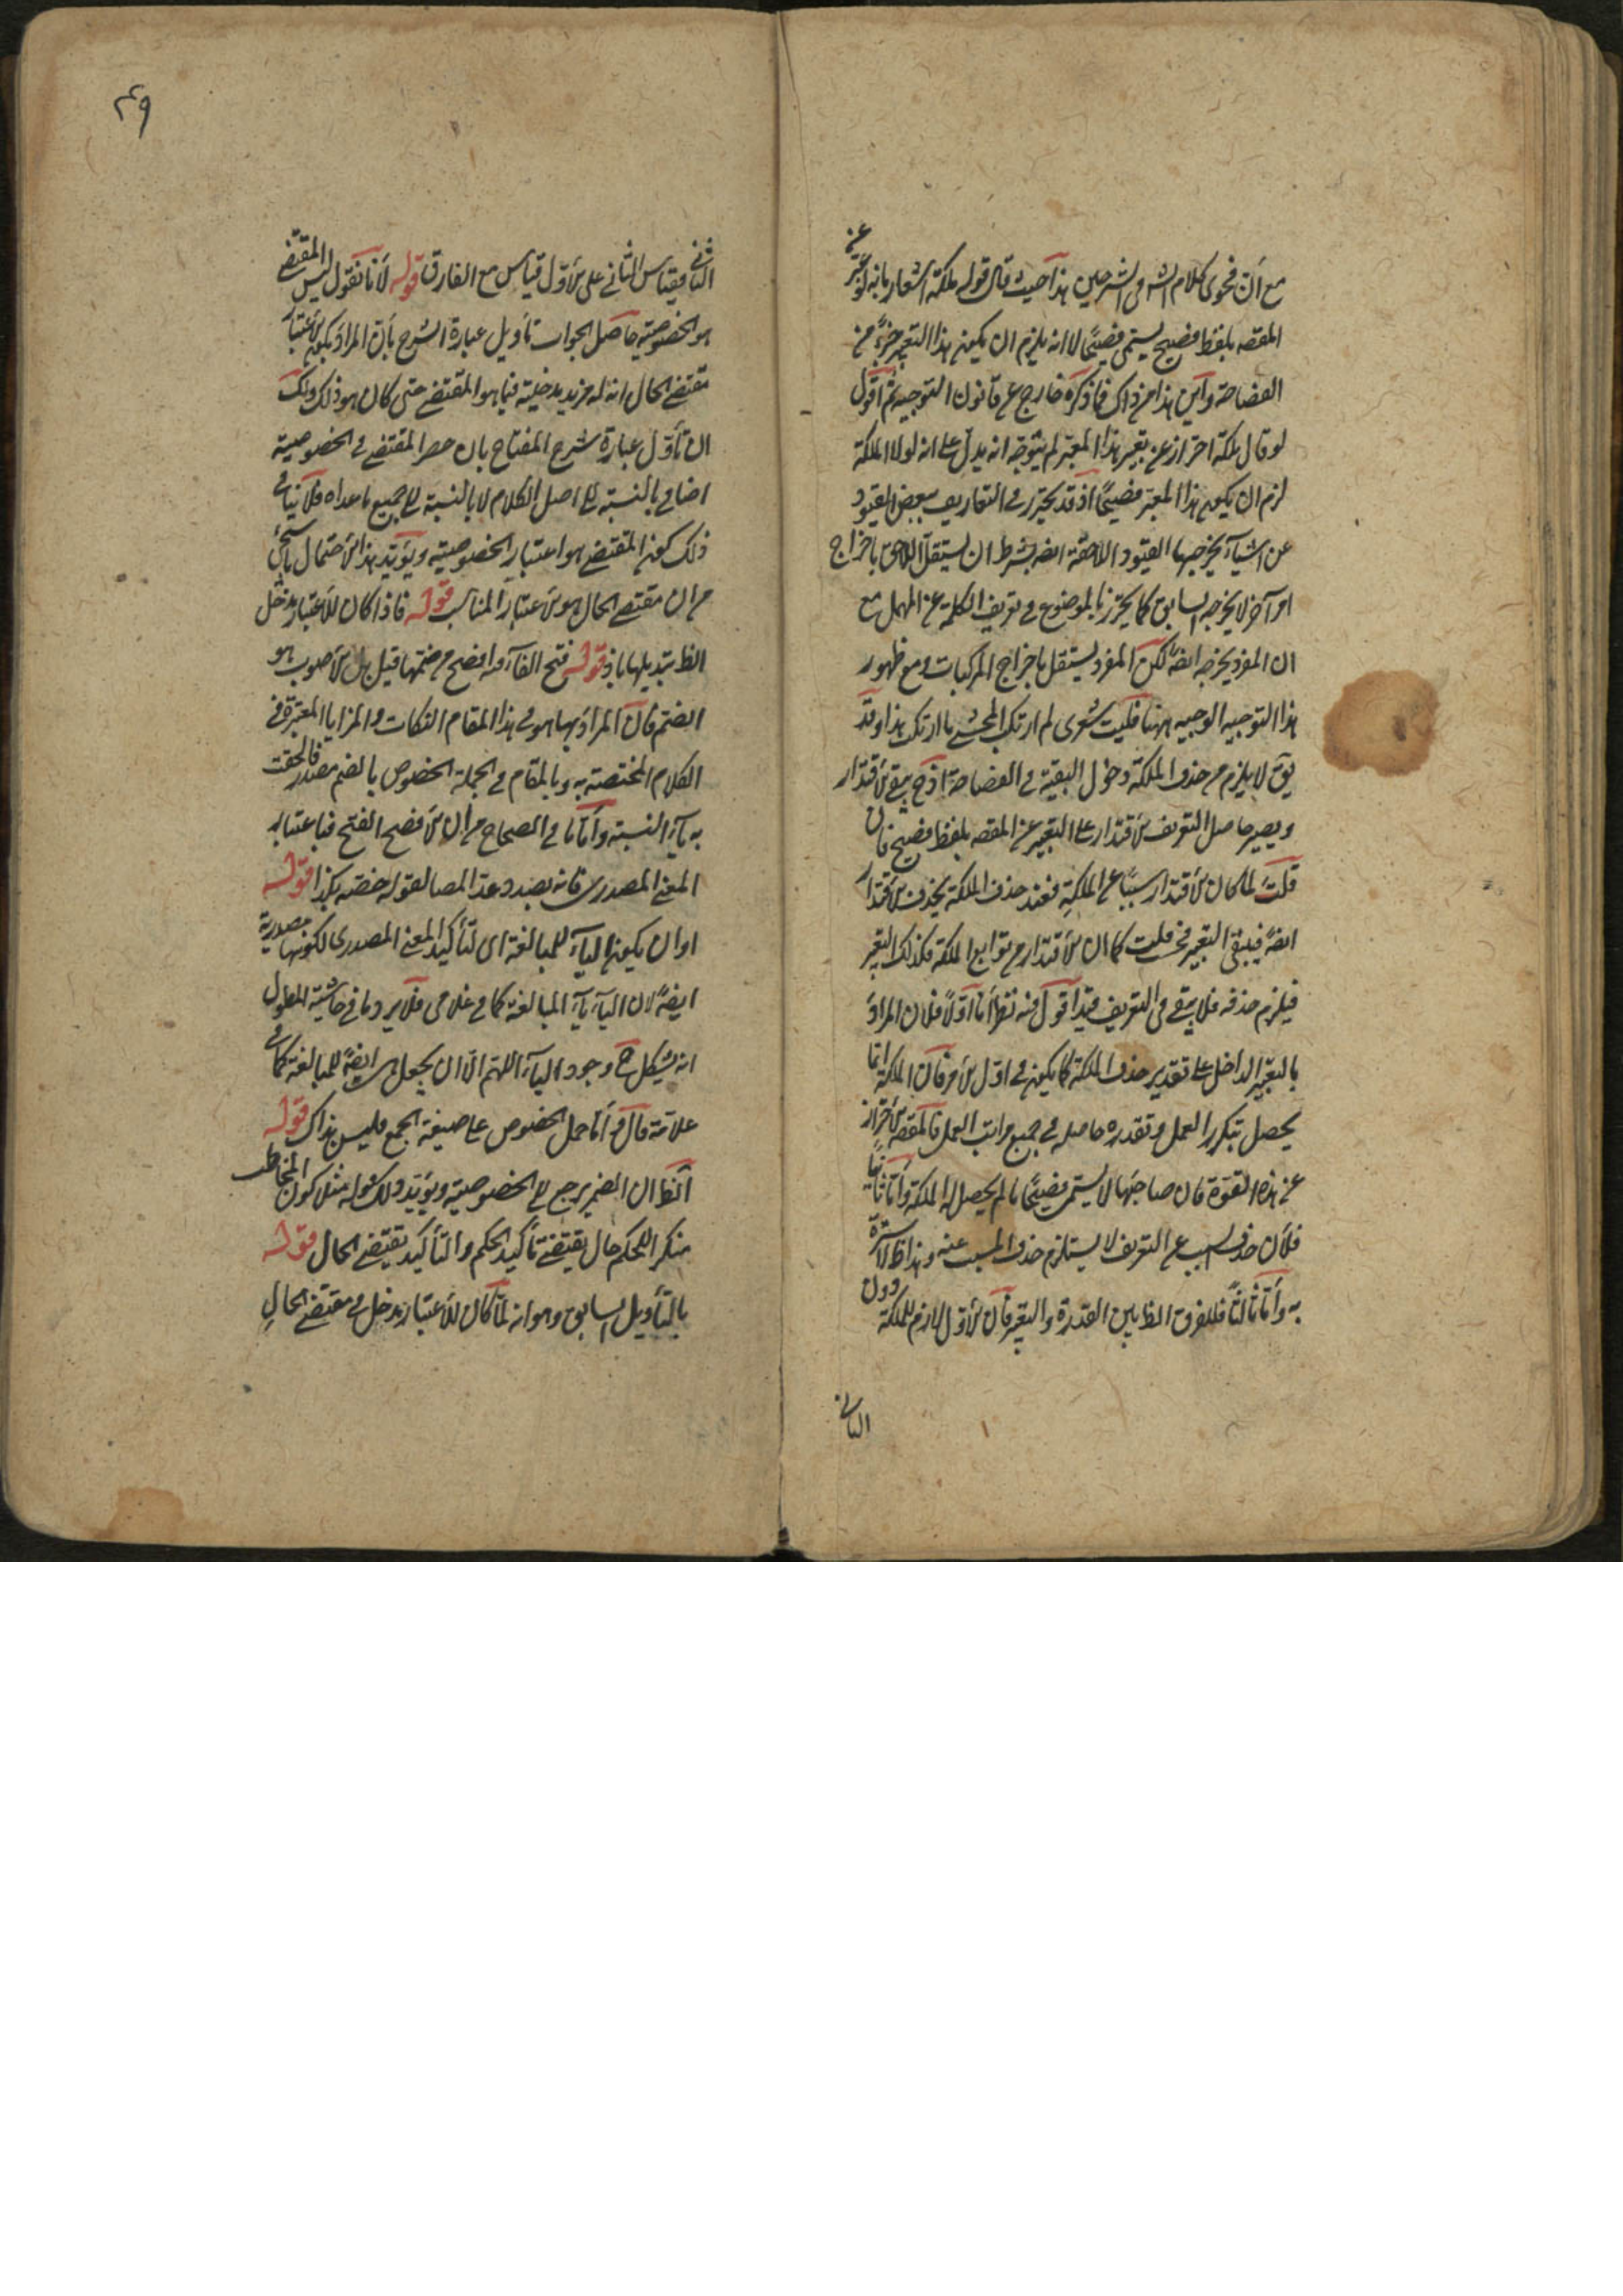 مع أن فحوى كلام الشه فى الشرحين هذا حيث قال قوله ملكة اشعار بانه لو عبّر عن
المقصه بلفظ فصيح يسمى فصيحًا لا انه يلزم ان يكون هذا التعبير جزءً من
الفصاحة واين هذا من ذاك فما ذكره خارج عن قانون التوجيه ثم اقول
لو قال ملكة احتراز عن تعبير هذا المعبّر لم يتوجه انه يدلّ على انه لولا الملكة
لزم ان يكون هذا المعبّر فصيحًا اذ قد يحترز فى التعاريف ببعض القيود
عن اشياء يخرجها القيود اللاحقة ايضه بشرط ان يستقل اللاحق باخراج
امر آخر لا يخرجه السابق كما يحترز بالموضوع فى تعريف الكلمة عن المهمل مع
ان المفرد يخرجه ايضهً لكن المفرد يستقل باخراج المركبات ومع ظهور
هذا التوجيه الوجيه ههنا فليت شعرى لم ارتكب المحشى ما ارتكب هذا وقد
يقَ لا يلزم من حذف الملكة دخول البقية فى الفصاحة اذ ح يبقى الأقتدار
ويصير حاصل التعريف الأقتدار على التعبير عن المقصه بلفظ فصيح فان
قلتَ لما كان الأقتدار سببًا عن الملكة فعند حذف الملكة يحذف الأقتدار
ايضهً فيبقى التعبير فحسب قلت كما ان الأقتدار من توابع الملكة فكذلك التعبير
فيلزم حذفه فلا يبقى فى التعريف قيد اقول فيه نظر أمّا اوّلاً فلان المراد
بالتعبير الداخل على تقدير حذف الملكة ما يكون فى اوّل الأمر فان الملكة انما
يحصل بتكرر العمل وتقدره حاصله فى جميع مراتب العمل فالمقصه الأحتراز
عن هذه القوة فان صاحبها لا يسمى فصيحًا ما لم يحصل له الملكة وأمّا ثانيًا
فلأن حذف السبب عن التعريف لا يستلزم حذف المسبب عنه وهذا ظ لا سترة
به وأمّا ثالثًا فللفرق الظ بين القدرة والتعبير فان الأوّل لازم للملكة دون
الثانى
٤٩
الثانى فقياس الثانى على الأوّل قياس مع الفارق قوله لأنا نقول ليس المقتضى
هو الخصوصية حاصل الجواب تأويل عبارة الشرح بأن المراد بكون الأعتبار
مقتضى الحال انه له مزيد مدخلية فيما هو المقتضى حتى كان هو ذلك ولك
ان تأوّل عبارة شرح المفتاح بان حصر المقتضى فى الخصوصية
اضافى بالنسبة الى اصل الكلام لا بالنسبة الى جميع ما عداه فلا ينافى
ذلك كون المقتضى هو اعتبار الخصوصية ويؤيّد هذا الأحتمال ما سيجئ
من ان مقتضى الحال هو الأعتبار المناسب قوله فاذا كان للأعتبار مدخل
الظ تبديلها باذ قوله فتح الفاء فيه افصح من ضمها قيل بل الأصوب هو
الضم فان المراد بها هو فى هذا المقام النكات والمزايا المعتبرة فى
الكلام المختصة به وبالمقام فى الجملة الخصوص بالضم مصدر فالحقت
به ياء النسبة وأمّا ما فى الصحاح من ان الأفصح الفتح فباعتبار
المعنى المصدرى فانه بصدد عدّ المصا لقوله خصّه بكذا قوله
او ان يكون الياء للمبالغة اى لتأكيد المعنى المصدرى لكونها مصدرية
ايضهً لان الياء ياء المبالغة كما فى غلامى فلا يرد ما فى حاشية المطول
انه يشكل ح وجود الياء اللهم الّا ان يجعل ايضهً للمبالغة كما فى
علامة فال وأمّا حمل الخصوص على صيغة الجمع فليس بذاك قوله
الظ ان الضمير يرجع الى الخصوصية ويؤيّد ذلك قوله مثلا كون المخاطب
منكرا للحكم حال يقتضى تأكيد الحكم والتأكيد يقتضى الحال قوله
بالتأويل السابق وهو انه لمّا كان للأعتبار مدخل فى مقتضى الحال